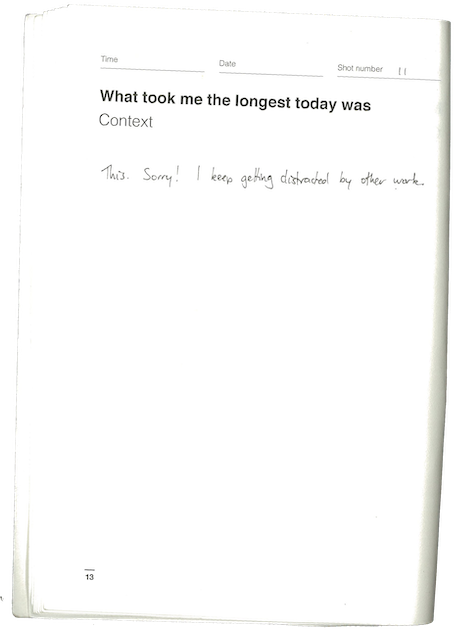 Time Date Shot number 11
What took me the longest today was
Context
This. Sorry! I keep getting distracted by other work.
13